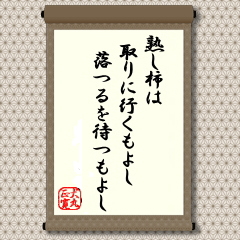 熟し柿は
取りに行くもよし
落つるを待つもよし
大丸
正寛